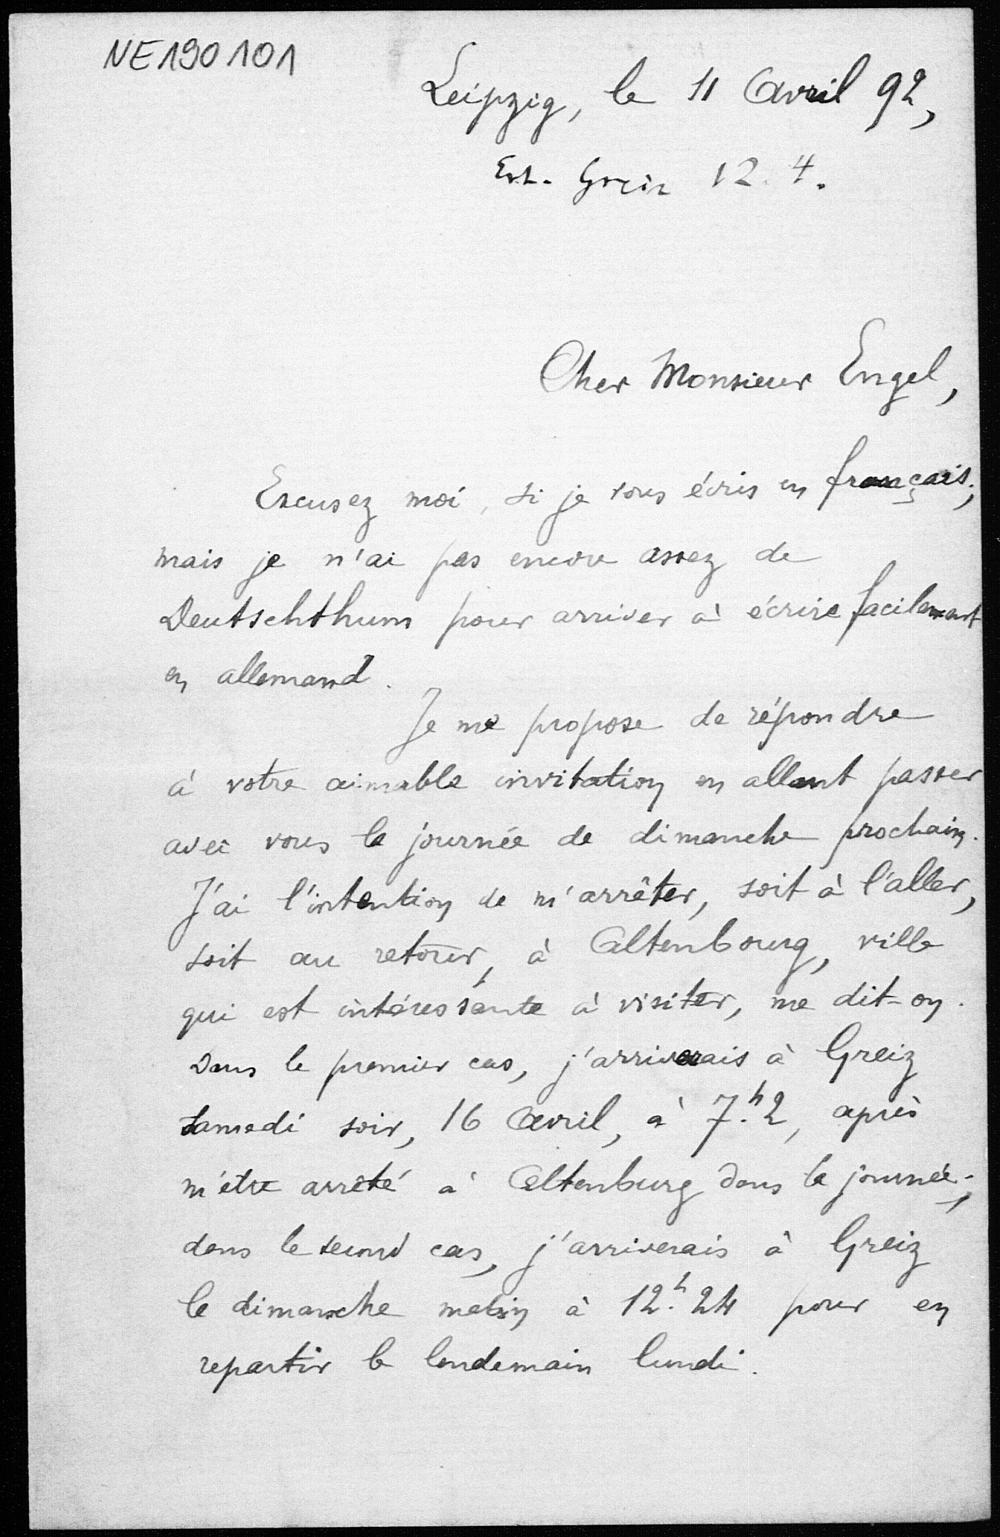 NE190101
Leipzig, le 11 Avril 92,
Erh. Greiz 12. 4.
Cher Monsieur Engel,
Excusez moi, si je vous écris en français;
mais je n'ai pas encore assez de
Deutschthum pour arriver à écrire facilement
en allemand.
Je me propose de répondre
à votre aimable invitation en allant passer
avec vous la journée de dimanche prochain.
J'ai l'intention de m'arrêter, soit à l'aller,
soit au retour, à Altenbourg, ville
qui est intéressante à visiter, me dit-on.
Dans le premier cas, j'arriverais à Greiz
samedi soir, 16 Avril, à 7.h2, après
m'être arrêté à Altenburg dans la journée;
dans le second cas, j'arriverais à Greiz
le dimanche matin à 12.h24 pour en
repartir le lendemain lundi.